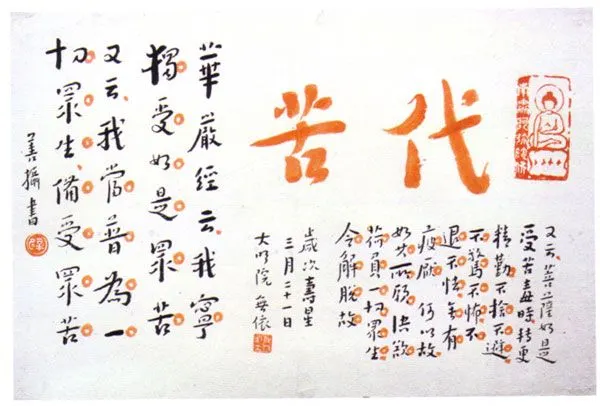 代苦
又云、菩薩如是
受苦毒時、轉更
精勤、不捨不避
不驚不怖、不
退不怯、无有
疲厭、何以故
如其所願、決欲
荷負一切眾生
令解脫故
歲次壽星
三月二十一日
大明院 無依
華嚴經云、我寧
獨受如是眾苦
又云、我當普為一
切眾生、備受眾苦
善攝書